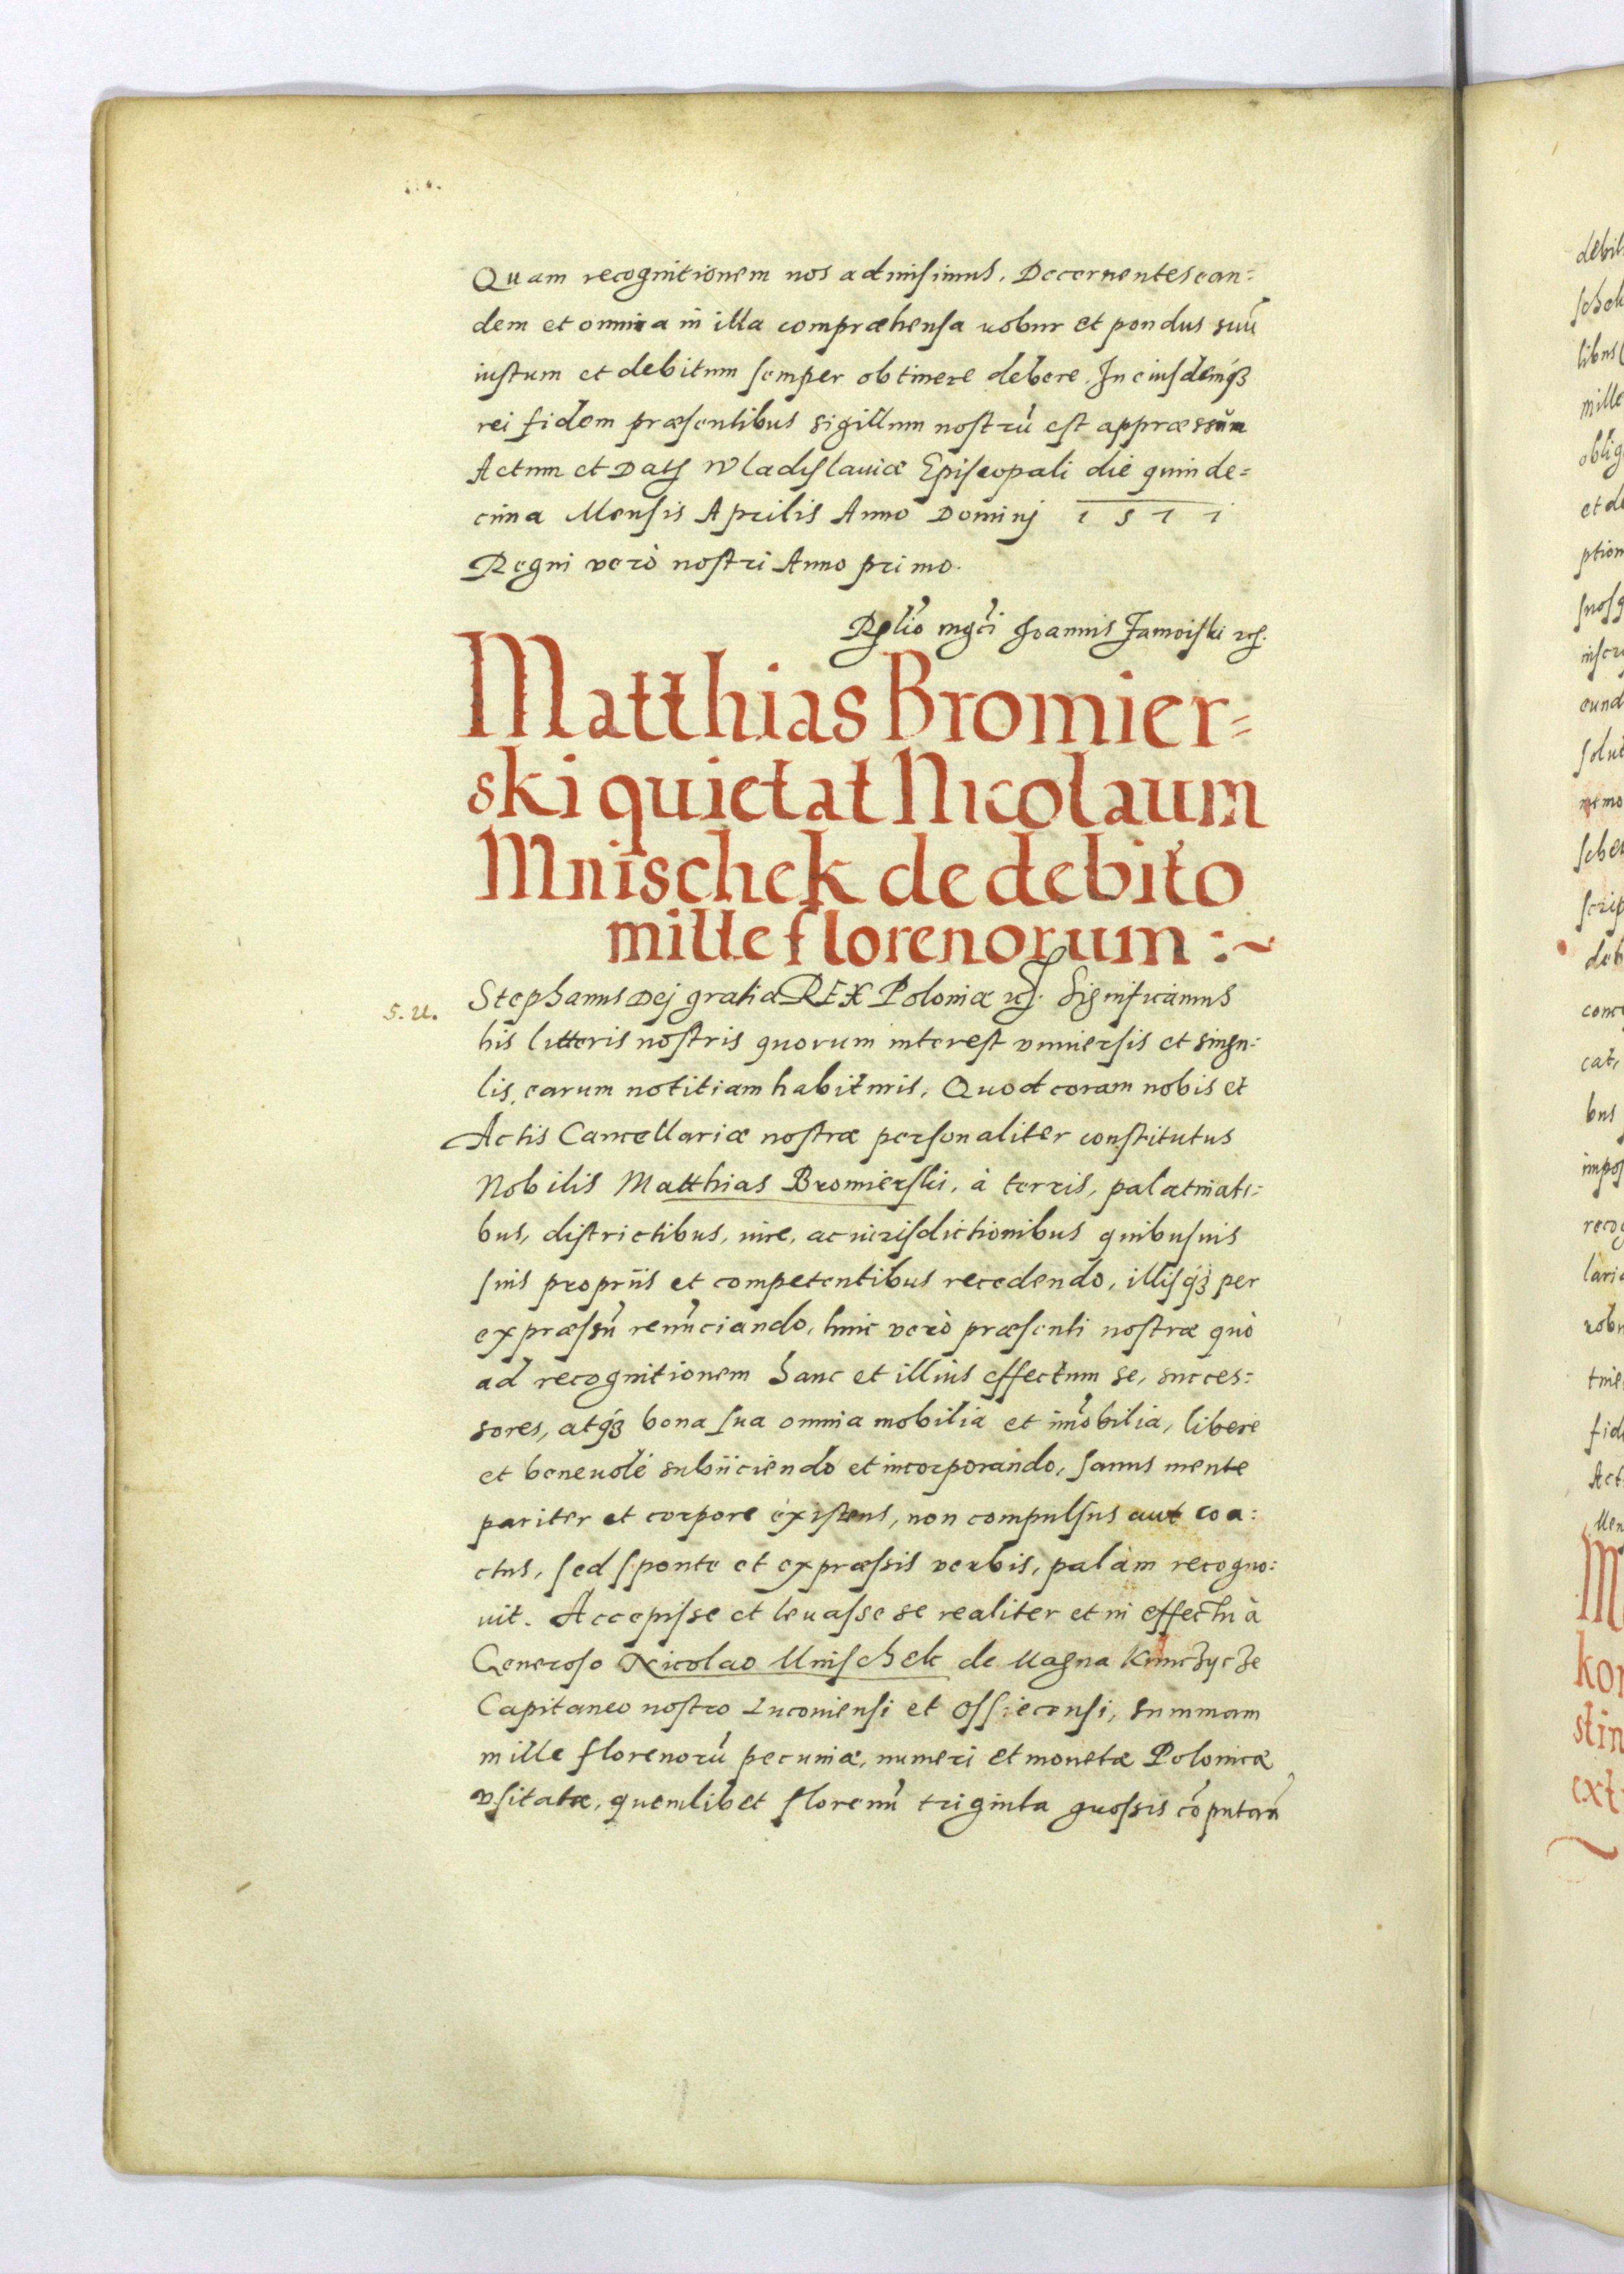 Quam recognitionem nos admisimus. Decernentes ean=
dem et omnia in illa compræhensa robur et pondus suũ
iustum et debitum semper obtinere debere. In eiusdemq3
rei fidem præsentibus sigillum nostrũ est appræssum
Actum et Dat Wladislaviæ Episcopali die quinde=
cima Mensis Aprilis Anno Dominj 1577
Regni verò nostri Anno primo.
Rylio mgci Joannis Zamoiski
Matthias Bromier=
ski quietat Nicolaum
Mnischek de debito
mille florenorum :~
Stephanus Dej gratia REX Poloniæ Significamus
his litteris nostris quorum interest vniuersis et singu=
lis, earum notitiam habituris. Quod coram nobis et
Actis Cancellariæ nostræ personaliter constitutus
Nobilis Matthias Bromierski, à terris, palatinati=
bus, districtibus, iure, ac iurisdictionibus quibusuis
suis propriis et competentibus recedendo, illisq3 per
expræssũ renũciando, huic verò præsenti nostræ quò
ad recognitionem hanc et illius effectum se, succes=
sores, atq3 bona sua omnia mobilia et im̃obilia, liberè
et beneuolè subiiciendo et incorporando, sanus mente
pariter et corpore existens, non compulsus aut coa=
ctus, sed sponte et expræssis verbis, palàm recogno=
uit. Accepisse et leuasse se realiter et in effectu à
Generoso Nicolao Mnischek de Magna Kunczycze
Capitaneo nostro Lucouiensi et Ossiecensi, summam
mille florenorũ pecuniæ, numeri et monetæ Polonicæ
vsitatæ, quemlibet florenũ triginta grossis cõputan̄